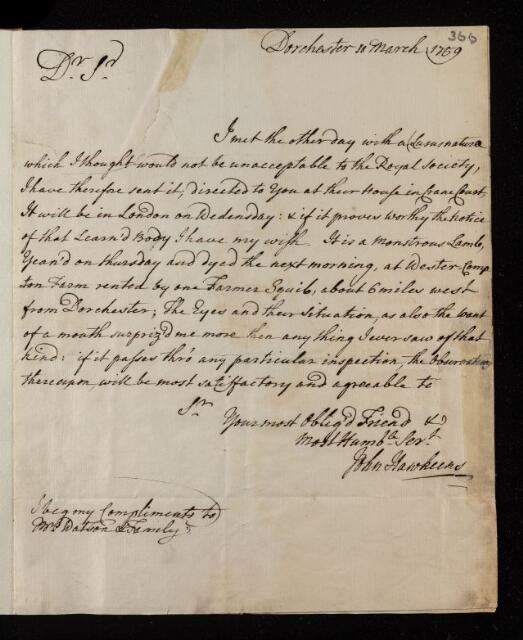 366
Dorchester 10 March 1759
Dr. Sr.
I met the other day with a Lusus naturæ
which I thought would not be unacceptable to the Royal Society,
I have therefore sent it, directed to You at their House in Crane Court,
It will be in London on Wedensday: & if it proves worthy the Notice
of that Learn'd Body I have my wish. It is a Monstrous Lamb,
Yean'd on thursday and dyed the next morning, at Wester-Comp
ton Farm rented by one Farmer Squib, about 6 miles west
from Dorchester; The Eyes and their Situation, as also the want
of a mouth surpriz'd me more then any thing I ever saw of that
kind: if it passes thro' any particular inspection, the Observations
thereupon, will be most satisfactory and agreeable to
Sr.
Your most Oblig'd Friend &
Most Humble Servt.
John Hawkeens
I beg my Compliments to
Mrs. Watson & Family